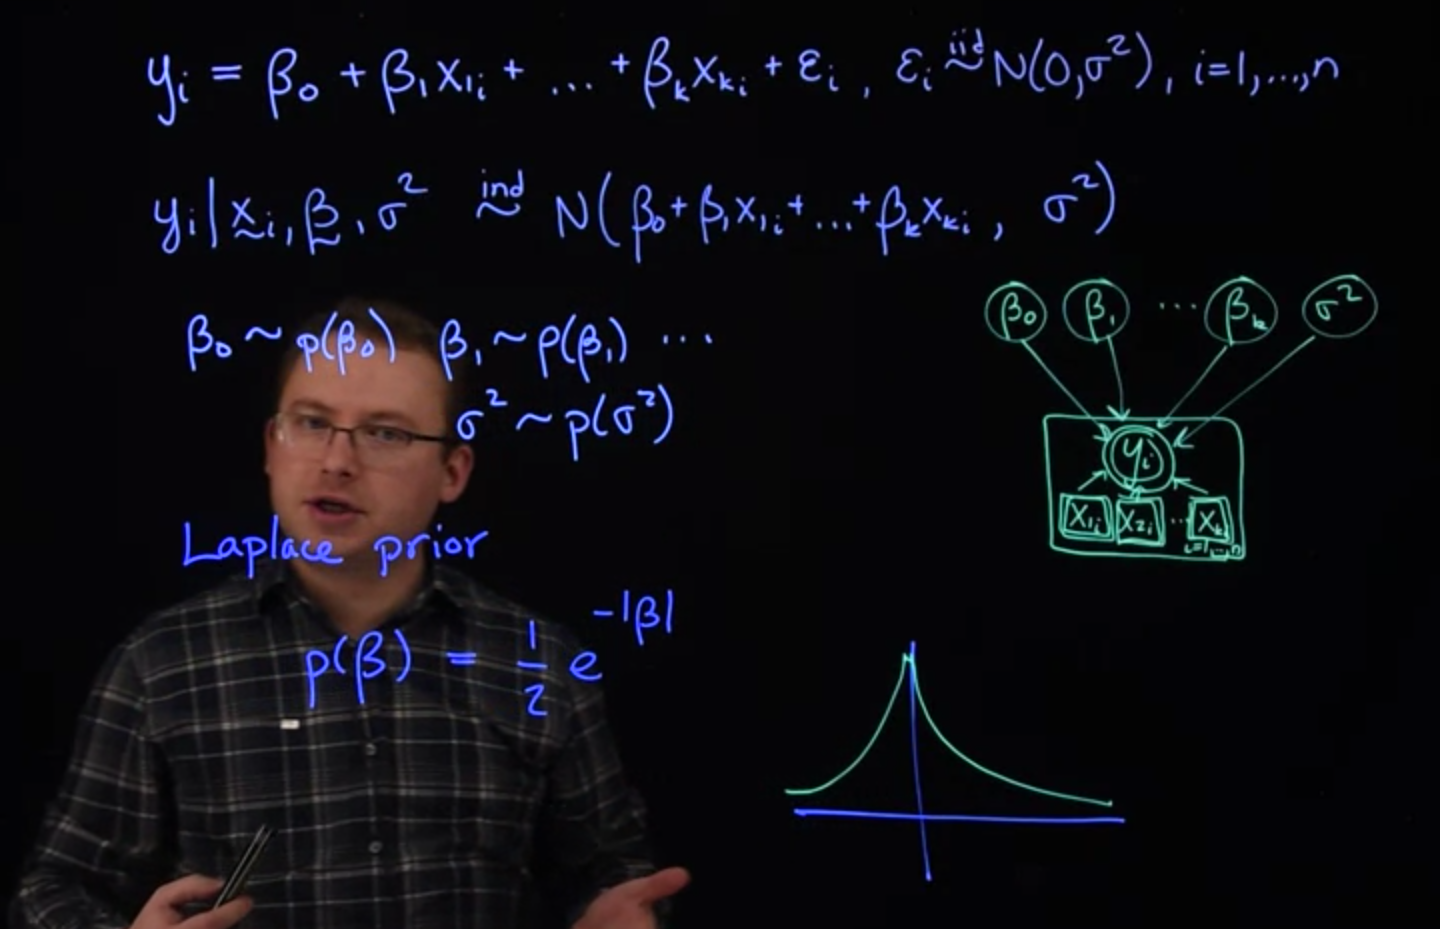 yᵢ = β₀ + β₁x₁ᵢ + ... + βₖxₖᵢ + εᵢ , εᵢ iid~ N(0,σ²), i=1,...,n
yᵢ | x̰ᵢ, β̰, σ² ind~ N(β₀+β₁x₁ᵢ+...+βₖxₖᵢ , σ²)
β₀ ~ p(β₀) β₁ ~ p(β₁) ...
σ² ~ p(σ²)
β₀ β₁ ... βₖ σ²
yᵢ
x₁ᵢ x₂ᵢ ... xₖᵢ
i=1,...,n
Laplace prior
p(β) = 1/2 e^-|β|